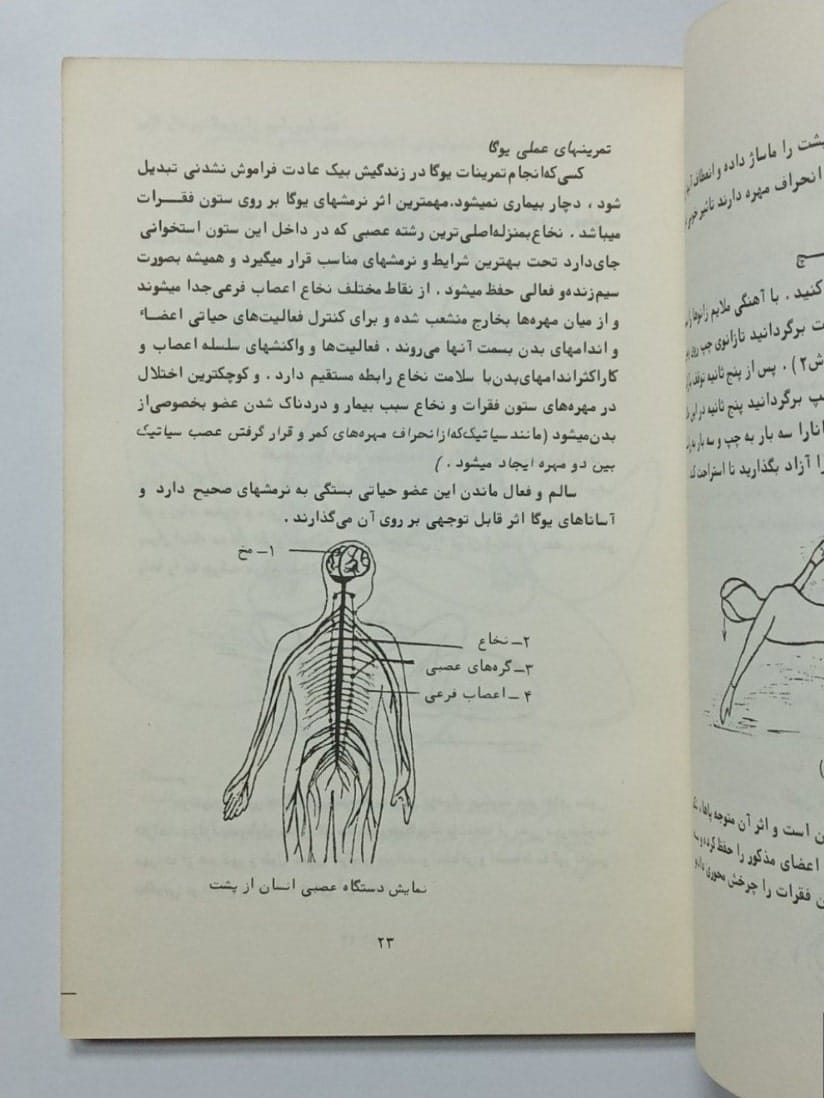 تمرینهای عملی یوگا
کسی‌که‌انجام تمرینات یوگا در زندگیش بیک عادت فراموش نشدنی تبدیل
شود ، دچار بیماری نمیشود.مهمترین اثر نرمشهای یوگا بر روی ستون فقـــرات
میباشد . نخاع‌بمنزله‌اصلی‌ترین رشته عصبی که در داخل این ستون استخوانی
جای‌دارد تحت بهترین شرایط و نرمشهای مناسب قرار میگیرد و همیشه بصورت
سیم‌زنده‌و فعالی حفظ میشود . از نقاط مختلف نخاع اعصاب فرعی‌جدا میشوند
و از میان مهره‌ها بخارج منشعب شده و برای کنترل فعالیت‌های حیاتی اعضـاءٔ
و اندامهای بدن بسمت آنها می‌روند . فعالیت‌ها و واکنشهای سلسله اعصاب و
کاراکثراندامهای‌بدن‌با سلامت نخاع رابطه مستقیم دارد . و کوچکترین اختلال
در مهره‌های ستون فقرات و نخاع سبب بیمار و دردناک شدن عضو بخصوصی‌از
بدن‌میشود (مانند سیاتیک‌که‌از‌انحراف مهره‌های کمر و قرار گرفتن عصب سیاتیک
بین دو مهره ایجاد میشود . )
سالم و فعال ماندن این عضو حیاتی بستگی به نرمشهای صحیح دارد و
آساناهای یوگا اثر قابل توجهی بر روی آن می‌گذارند .
۱ــ مخ
۲ــ نخاع
۳ــ گره‌های عصبی
۴ ــ اعصاب فرعی
نمایش دستگاه عصبی انسان از پشت
۲۳
پشت را ماساژ داده و انعطاف
انحراف مهره دارند تاثیر
کنید . با آهنگی ملایم زانوها
ت برگردانید تا زانوی چپ روی
ش۲ ) . پس از پنج ثانیه توقف
پ برگردانید پنج ثانیه در این
انارا سه بار به چپ و سه بار
را آزاد بگذارید تا استراحت کند
ن است و اثر آن متوجه پاها ،
اعضای مذکور را حفظ کرده و
ن فقرات را چرخش محوری داده